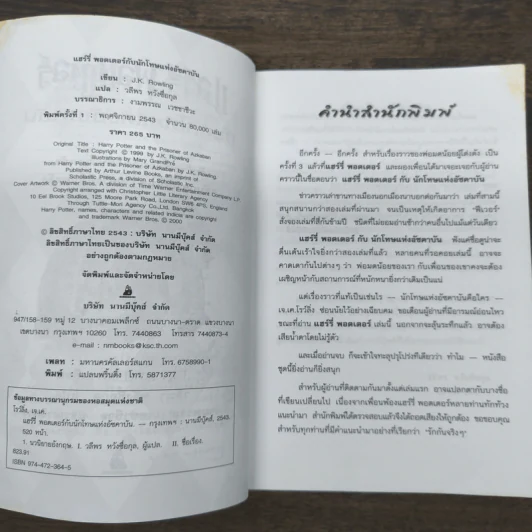 แฮร์รี่ พอตเตอร์กับนักโทษแห่งอัซคาบัน
เขียน : J.K. Rowling
แปล : วลีพร หวังซื่อกุล
บรรณาธิการ : งามพรรณ เวชชาชีวะ
พิมพ์ครั้งที่ 1 : พฤศจิกายน 2543 จำนวน 80,000 เล่ม
ราคา 265 บาท
Original Title : Harry Potter and the Prisoner of Azkaban
Text Copyright © 1999 by J.K. Rowling
Illustrations by Mary GrandPré
from Harry Potter and the Prisoner of Azkaban by J.K. Rowling,
Published by Arthur Levine Books, an imprint of
Scholastic Press, a division of Scholastic Inc.
Cover Artwork © Warner Bros. A division of Time Warner Entertainment Company L.P.
Copyright arranged with Christopher Little Literary Agency
10 Eel Brook Studios, 125 Moore Park Road, London SW6 4PS, England
Through Tuttle-Mori Agency Co.,Ltd., Bangkok
Harry Potter, names, characters and related indicia are copyright
and trademark Warner Bros. © 2000
© ลิขสิทธิ์ภาษาไทย 2543 : บริษัท นานมีบุ๊คส์ จำกัด
ลิขสิทธิ์ภาษาไทยเป็นของบริษัท นานมีบุ๊คส์ จำกัด
อย่างถูกต้องตามกฎหมาย
จัดพิมพ์และจัดจำหน่ายโดย
บริษัท นานมีบุ๊คส์ จำกัด
947/158-159 หมู่ 12 บางนาคอมเพล็กซ์ ถนนบางนา-ตราด แขวงบางนา
เขตบางนา กรุงเทพฯ 10260 โทร. 7440863 โทรสาร 7440873-4
e-mail : nmbooks@ksc.th.com
เพลท : มหานครคัลเลอร์สแกน โทร. 6758990-1
พิมพ์ : แปลนพริ้นติ้ง โทร. 5871377
ข้อมูลทางบรรณานุกรมของหอสมุดแห่งชาติ
โรว์ลิ่ง, เจ.เค.
แฮร์รี่ พอตเตอร์กับนักโทษแห่งอัซคาบัน. — กรุงเทพฯ : นานมีบุ๊คส์, 2543.
520 หน้า.
1. นวนิยายอังกฤษ. I. วลีพร หวังซื่อกุล, ผู้แปล. II. ชื่อเรื่อง.
823.91
ISBN 974-472-364-5
คำนำสำนักพิมพ์
อีกครั้ง — อีกครั้ง สำหรับเรื่องราวของพ่อมดน้อยผู้โด่งดัง เป็น
ครั้งที่ 3 แล้วที่แฮร์รี่ พอตเตอร์ และผองเพื่อนได้มาเจอะเจอกับผู้อ่าน
คราวนี้ในชื่อตอนว่า แฮร์รี่ พอตเตอร์ กับ นักโทษแห่งอัซคาบัน
ข่าวคราวเล่าขานทางเมืองนอกเมืองนาบอกต่อกันมาว่า เล่มที่สามนี้
สนุกสนานกว่าสองเล่มที่ผ่านมา จนเป็นเหตุให้เกิดอาการ “ฟีเวอร์”
สั่งจองเล่มที่สี่กันข้ามปี ชนิดที่ไม่ยอมอ่านช้ากว่าคนอื่นไปแม้แต่วันเดียว
แฮร์รี่ พอตเตอร์ กับ นักโทษแห่งอัซคาบัน ฟังแต่ชื่อดูน่าจะ
ตื่นเต้นเร้าใจยิ่งกว่าสองเล่มที่แล้ว หลายคนที่รอคอยเล่มนี้ อาจจะ
คาดเดากันไปต่างๆ ว่า พ่อมดน้อยของเรา กับเพื่อนของเขาคงจะต้อง
เผชิญหน้ากับสถานการณ์ที่หนักหนายิ่งกว่าเดิมเป็นแน่
แต่เรื่องราวที่แท้เป็นเช่นไร — นักโทษแห่งอัซคาบันคือใคร —
เจ.เค.โรว์ลิ่ง ซ่อนนัยไว้อย่างเฉียบคม ขอเตือนผู้อ่านที่มีอารมณ์อ่อนไหว
ขณะที่อ่าน แฮร์รี่ พอตเตอร์ เล่มนี้ นอกจากจะลุ้นระทึกแล้ว อาจต้อง
เสียน้ำตาโดยไม่รู้ตัว
และเมื่ออ่านจบ ก็จะเข้าใจทะลุปรุโปร่งทีเดียวว่า ทำไม — หนังสือ
ชุดนี้ยิ่งอ่านก็ยิ่งสนุก
สำหรับผู้อ่านที่ติดตามกันมาตั้งแต่เล่มแรก อาจแปลกตากับบางชื่อ
ที่เขียนเปลี่ยนไป เนื่องจากเพื่อนพ้องแฮร์รี่ พอตเตอร์หลายท่านทักท้วง
แนะนำมา สำนักพิมพ์ได้ตรวจสอบแล้วจึงได้ถอดเสียงให้ถูกต้อง ขอขอบคุณ
สำหรับทุกท่านที่มีคำแนะนำมาอย่างที่เรียกว่า “รักกันจริงๆ”